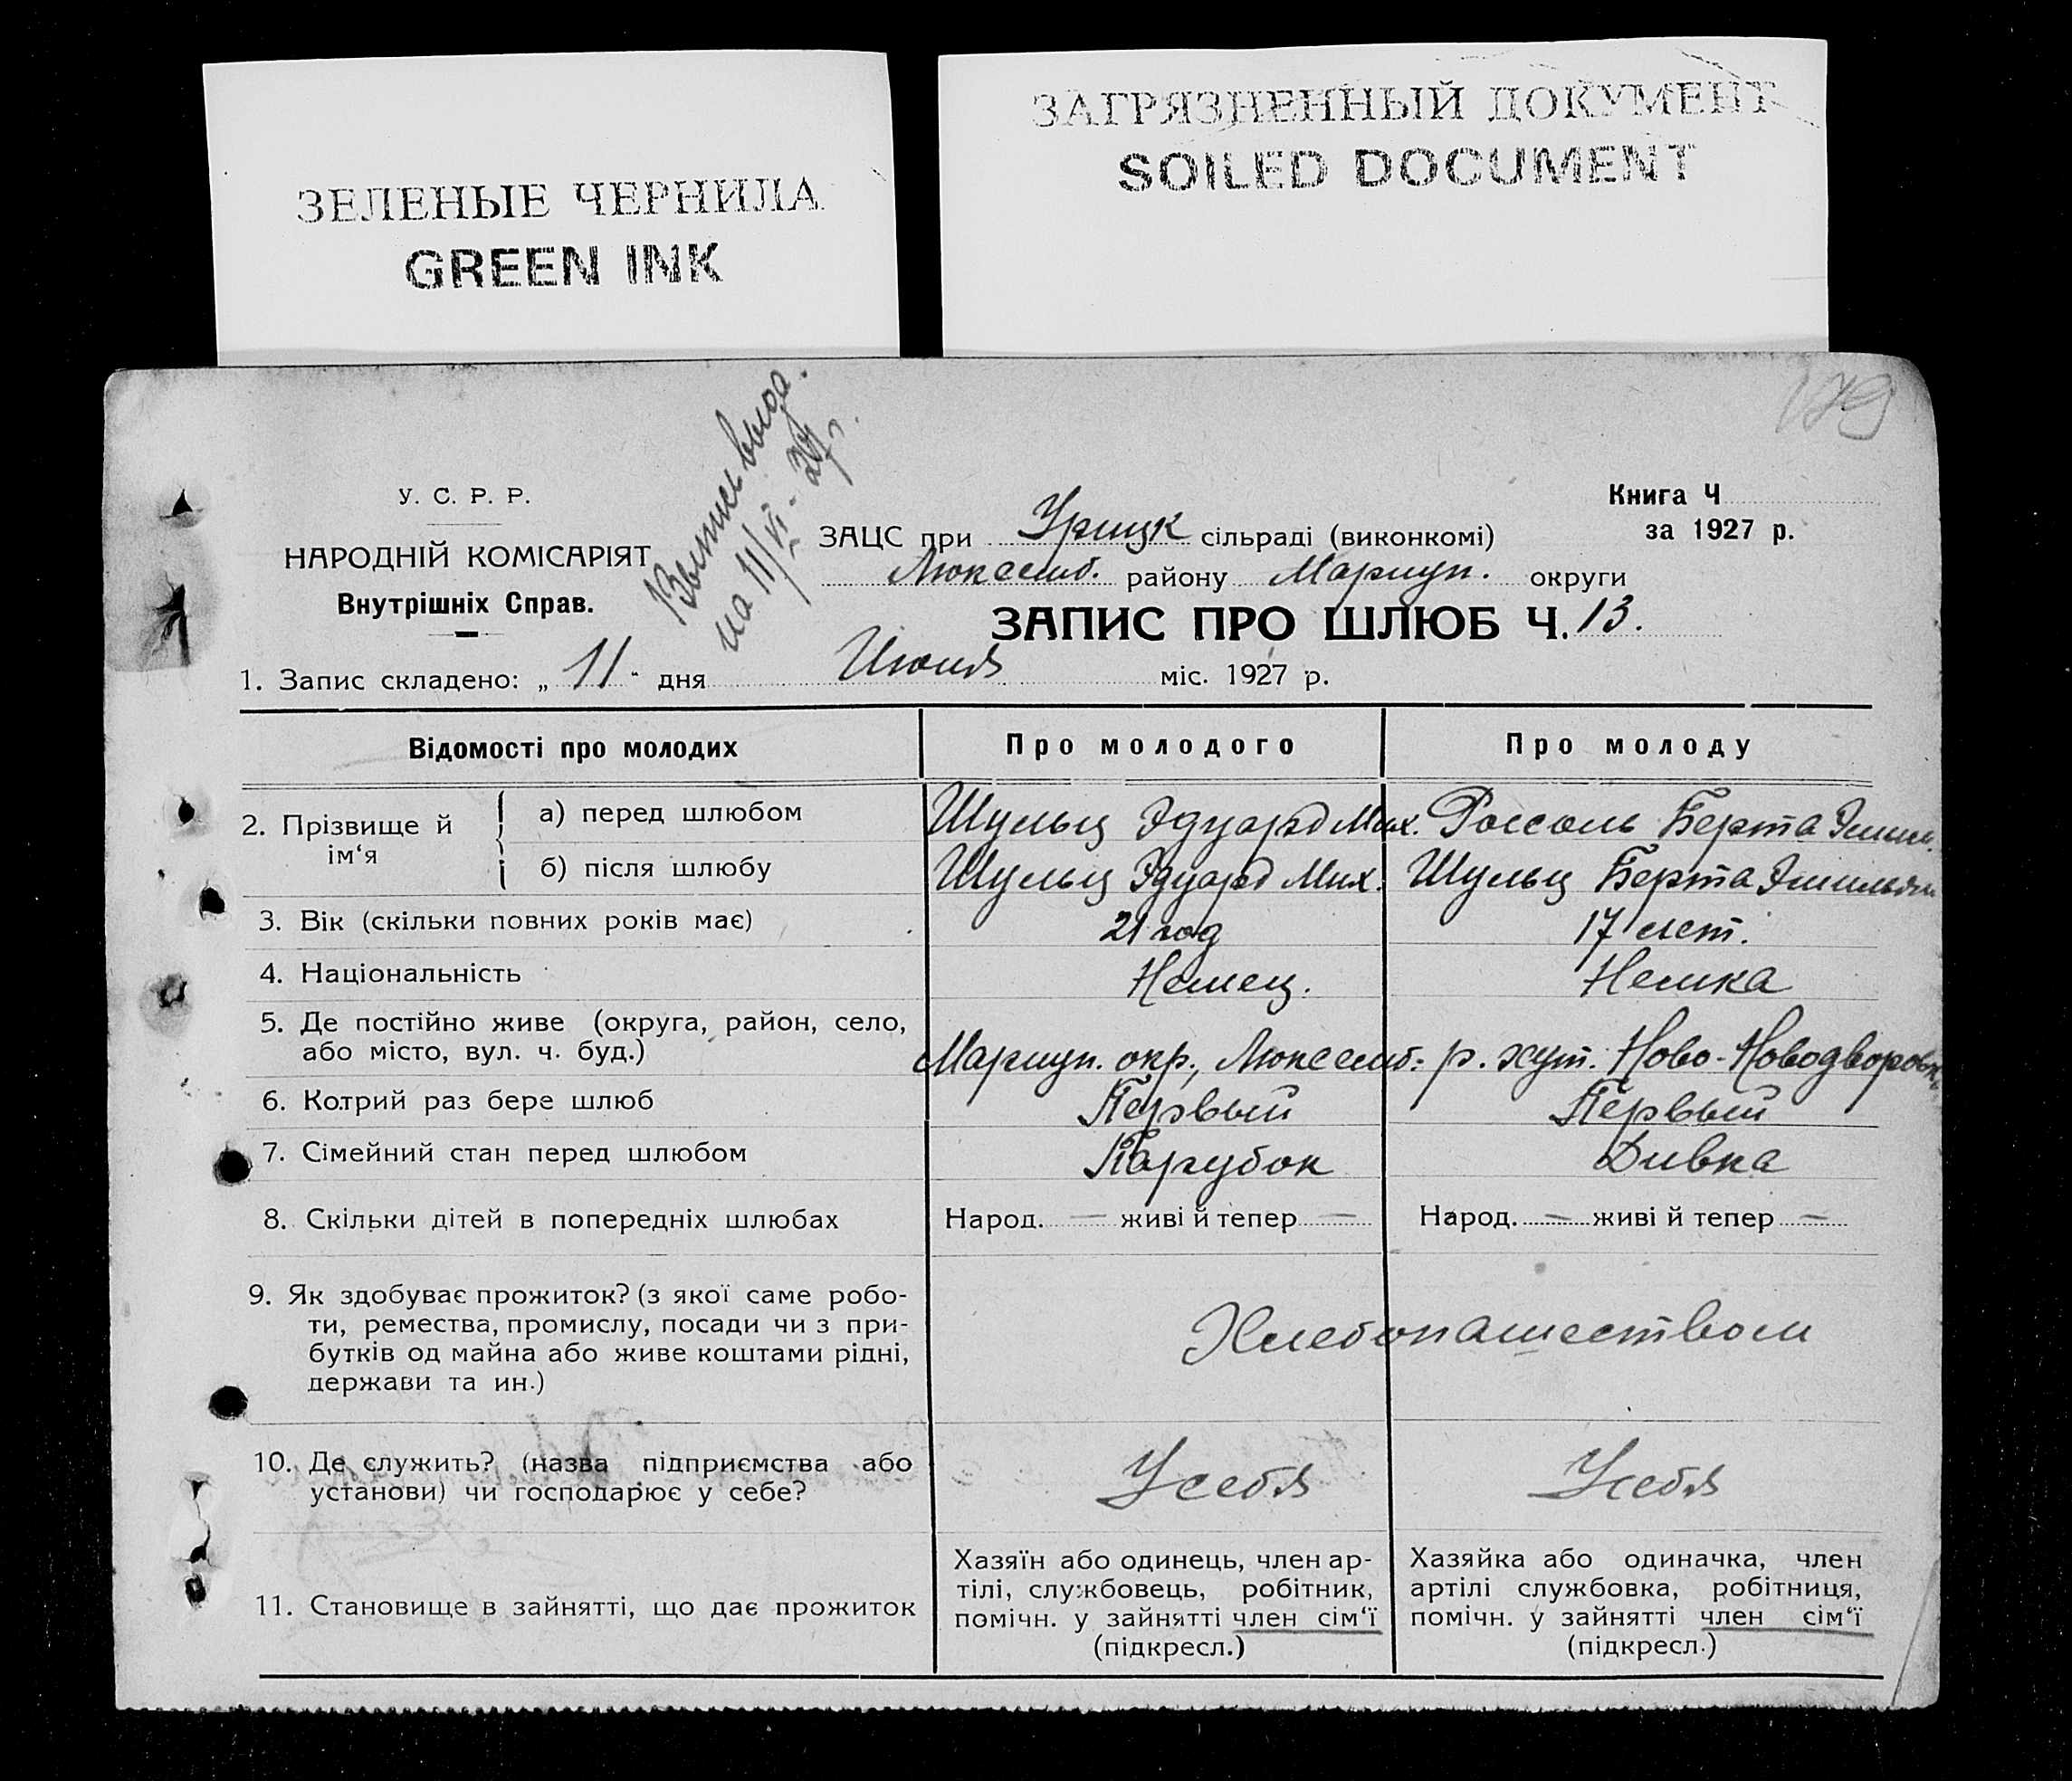 ЗЕЛЕНЫЕ ЧЕРНИЛА
GREEN INK
ЗАГРЯЗНЕННЫЙ ДОКУМЕНТ
SOILED DOCUMENT
179
Выпись выда.
на 11/VI - 27 г.
У. С. Р. Р.
НАРОДНІЙ КОМІСАРІЯТ
Внутрішніх Справ.
Книга Ч
за 1927 р.
ЗАЦС при Урицк сільраді (виконкомі)
Люксемб. району Мариуп. округи
ЗАПИС ПРО ШЛЮБ Ч. 13.
1. Запис складено: „ 11 - дня Июня міс. 1927 р.
Відомості про молодих Про молодого Про молоду
2. Прізвище й ім‘я
а) перед шлюбом Шульц Эдуард Мих. Россоль Берта Эмил.
б) після шлюбу Шульц Эдуард Мих. Шульц Берта Эмильян
3. Вік (скільки повних років має) 21 год 17 лет.
4. Національність Немец. Немка
5. Де постійно живе (округа, район, село,
або місто, вул. ч. буд.) Мариуп. окр., Люксемб. р. хут. Ново-Новодворовк
6. Котрий раз бере шлюб Первый Первый
7. Сімейний стан перед шлюбом Парубок Дивка
8. Скільки дітей в попередніх шлюбах Народ. — живі й тепер — Народ. — живі й тепер —
9. Як здобуває прожиток? (з якої саме робо-
ти, ремества, промислу, посади чи з при-
бутків од майна або живе коштами рідні,
держави та ин.)
Хлебопашеством
10. Де служить? (назва підприємства або
установи) чи господарює у себе?
Усебя Усебя
11. Становище в зайнятті, що дає прожиток
Хазяїн або одинець, член ар-
тілі, службовець, робітник,
помічн. у зайнятті член сім‘ї
(підкресл.)
Хазяйка або одиначка, член
артілі службовка, робітниця,
помічн. у зайнятті член сім‘ї
(підкресл.)